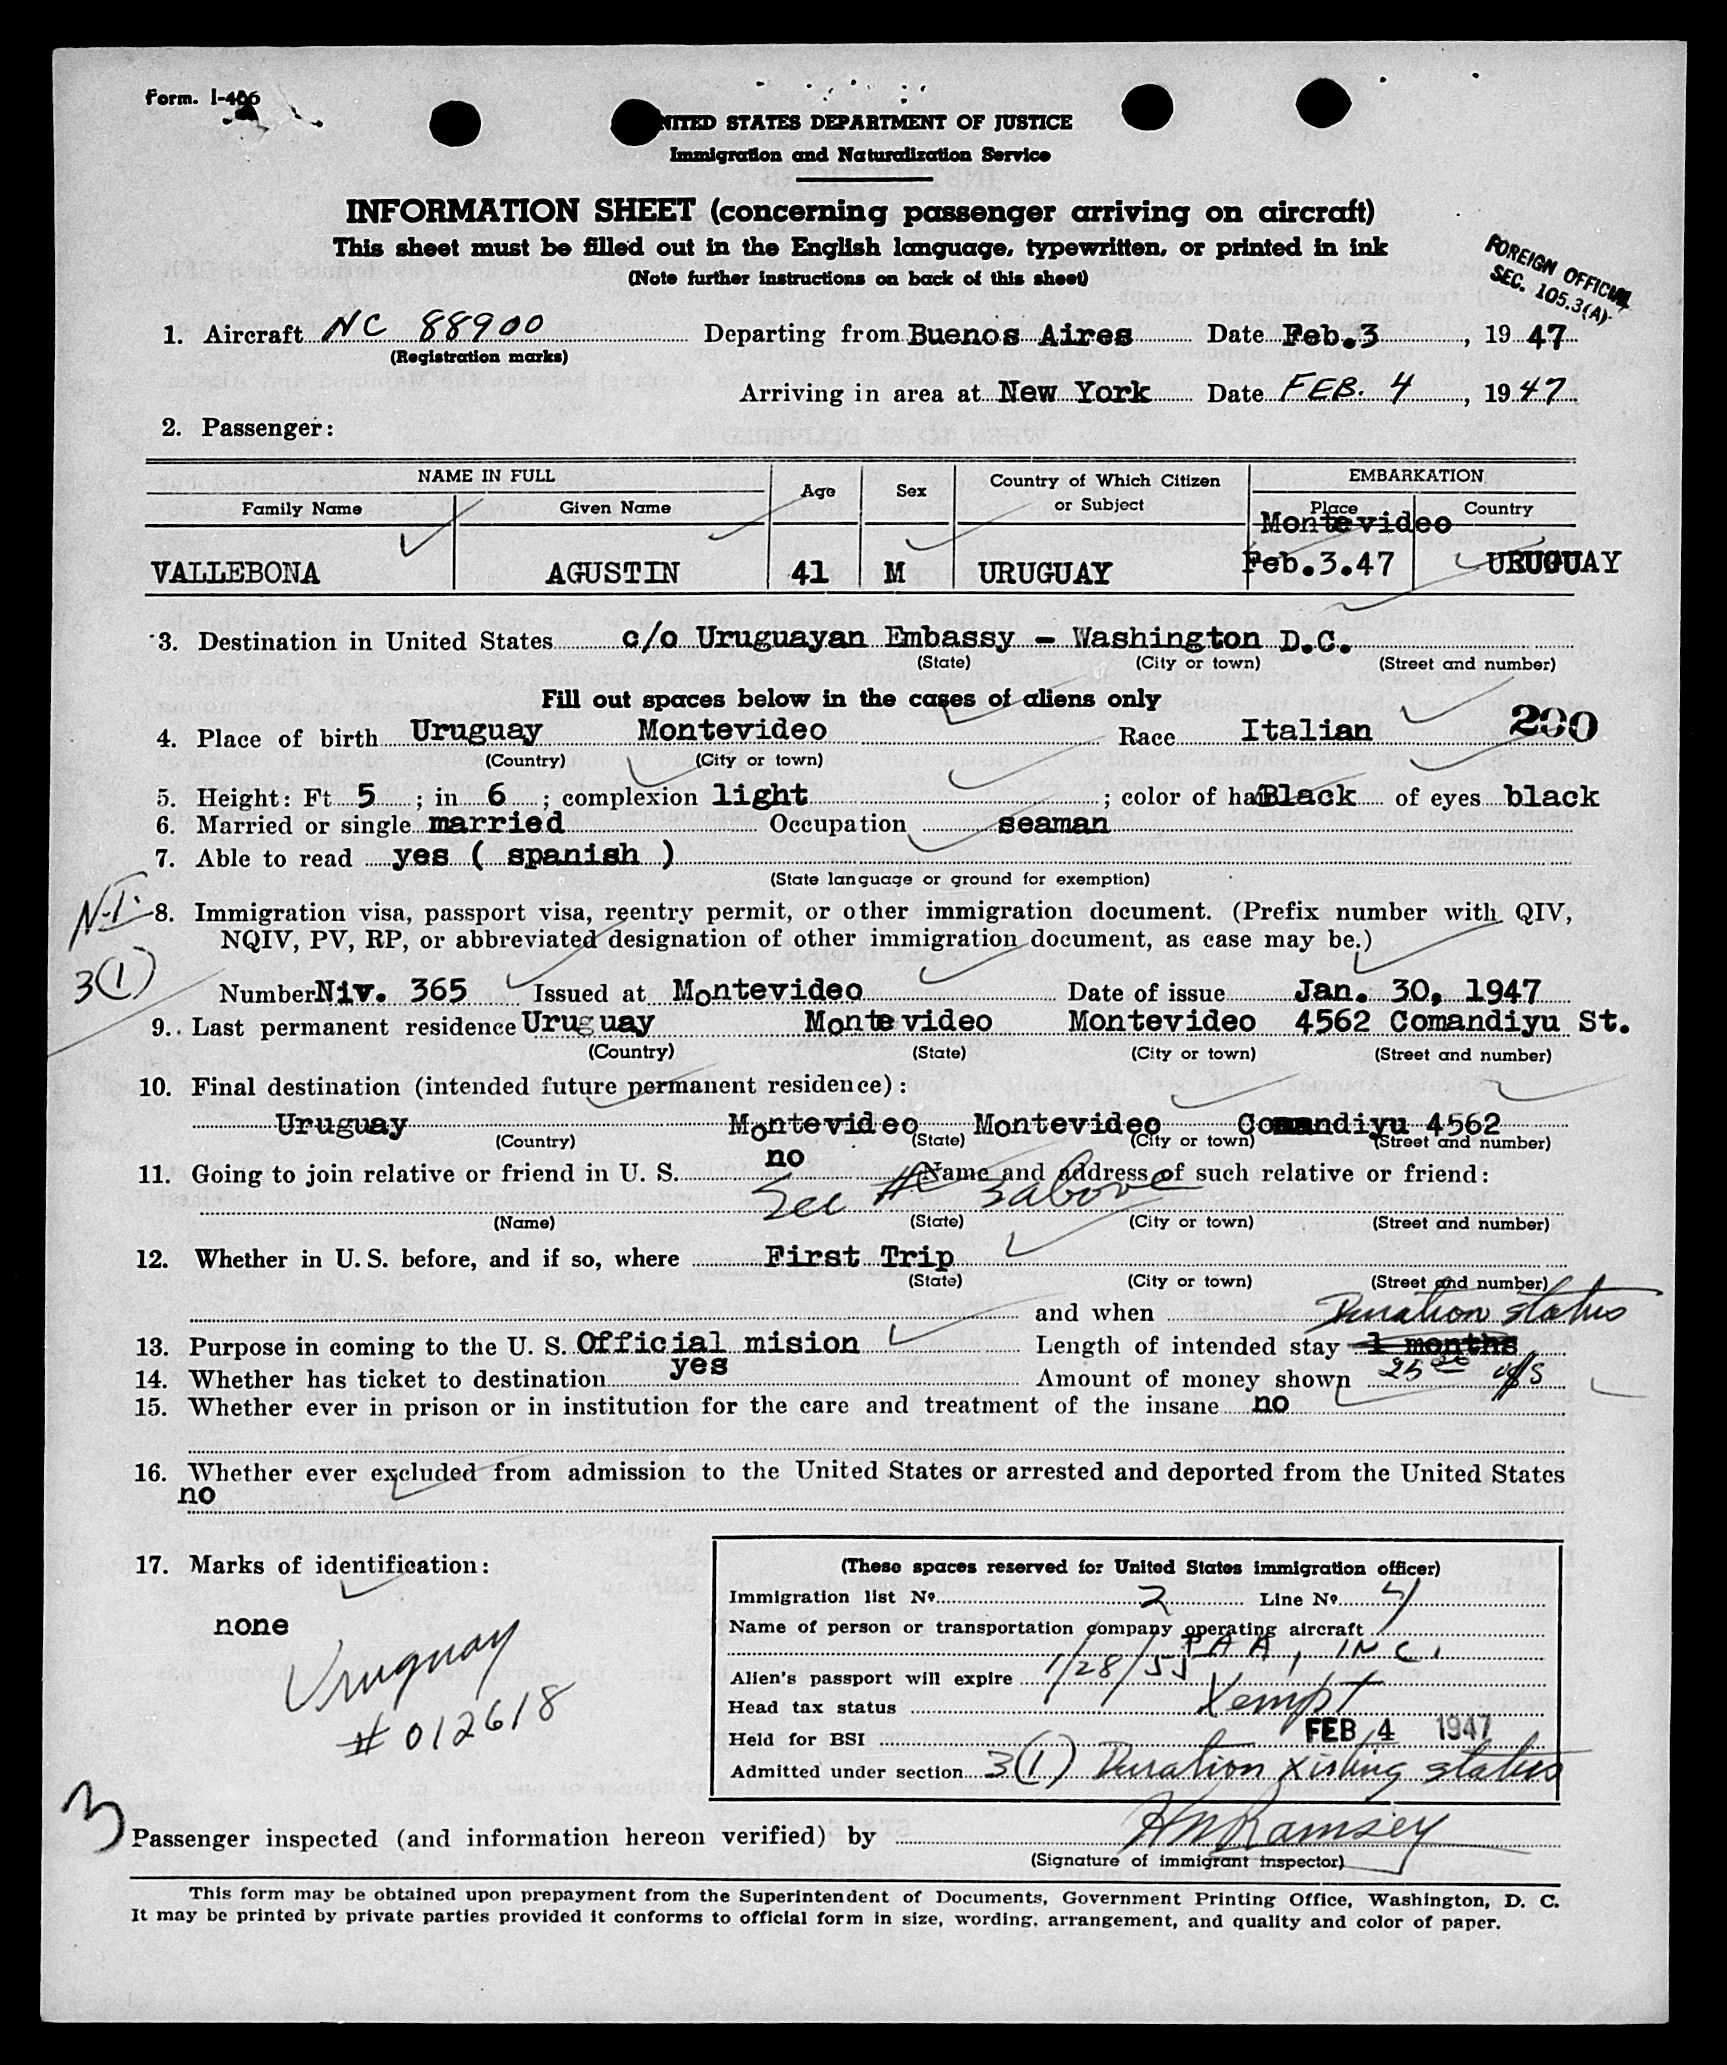 Form. I-466
UNITED STATES DEPARTMENT OF JUSTICE
Immigration and Naturalization Service
INFORMATION SHEET (concerning passenger arriving on aircraft)
This sheet must be filled out in the English language, typewritten, or printed in ink
(Note further instructions on back of this sheet)
FOREIGN OFFICIAL
SEC. 105.3(A)
1. Aircraft NC 88900 Departing from Buenos Aires Date Feb.3, 1947
(Registration marks)
Arriving in area at New York Date FEB. 4, 1947
2. Passenger:
NAME IN FULL Age Sex Country of Which Citizen or Subject EMBARKATION
Family Name Given Name Place Country
Montevideo
VALLEBONA AGUSTIN 41 M URUGUAY Feb.3.47 URUGUAY
3. Destination in United States c/o Uruguayan Embassy - Washington D.C.
(State) (City or town) (Street and number)
Fill out spaces below in the cases of aliens only
4. Place of birth Uruguay Montevideo Race Italian 200
(Country) (City or town)
5. Height: Ft 5; in 6; complexion light; color of hair Black of eyes black
6. Married or single married Occupation seaman
7. Able to read yes ( spanish )
(State language or ground for exemption)
N.I.
8. Immigration visa, passport visa, reentry permit, or other immigration document. (Prefix number with QIV,
NQIV, PV, RP, or abbreviated designation of other immigration document, as case may be.)
3(1)
Number Niv. 365 Issued at Montevideo Date of issue Jan. 30, 1947
9. Last permanent residence Uruguay Montevideo Montevideo 4562 Comandiyu St.
(Country) (State) (City or town) (Street and number)
10. Final destination (intended future permanent residence):
Uruguay Montevideo Montevideo Comandiyu 4562
(Country) (State) (City or town) (Street and number)
11. Going to join relative or friend in U. S. no Name and address of such relative or friend:
See # 3 above
(Name) (State) (City or town) (Street and number)
12. Whether in U. S. before, and if so, where First Trip
(State) (City or town) (Street and number)
and when Duration status
13. Purpose in coming to the U. S. Official mision Length of intended stay 1 months
14. Whether has ticket to destination yes Amount of money shown 25
15. Whether ever in prison or in institution for the care and treatment of the insane no
16. Whether ever excluded from admission to the United States or arrested and deported from the United States
no
17. Marks of identification:
none
Uruguay
# 012618
(These spaces reserved for United States immigration officer)
Immigration list No. 2 Line No. 4
Name of person or transportation company operating aircraft
PAA, INC.
Alien's passport will expire 1/28/55
Head tax status Xempt
Held for BSI FEB 4 1947
Admitted under section 3(1) Duration Xisting status
3
Passenger inspected (and information hereon verified) by HM Ramsey
(Signature of immigrant inspector)
This form may be obtained upon prepayment from the Superintendent of Documents, Government Printing Office, Washington, D. C.
It may be printed by private parties provided it conforms to official form in size, wording, arrangement, and quality and color of paper.